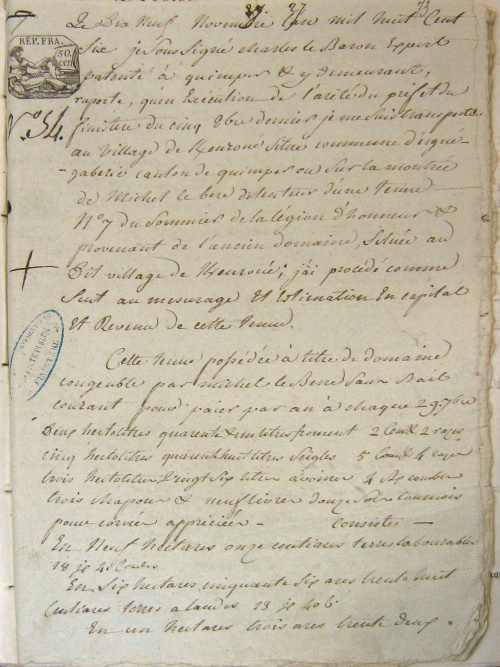 Le Dix Neuf Novembre l'an mil huit Cent
Six je Sous Signé charles le Baron Expert
RÉP. FRA.
50
patenté à quimper & y demeurant,
raporte, qu'en Exécution de l'arêté du préfet du
N.º 34.
finistere du cinq 8bre dernier je me suis transporté
au village de Kerroué Situé commune d'ergué
-gaberic canton de quimper ou Sur la montrée
de Michel le bere detenteur d'une Tenue
Nº 7 du Sommier de la légion d'honneur &
provenant de l'ancien domaine, Située au
Dit village de Kerroué; j'ai procédé comme
Suit au mesurage Et Estimation En capital
Et Revenu de cette tenue.
Cette tenue possédée à titre de domaine
congeable par michel le Berre Sans Bail
courant pour païer par an à chaque 29 7bre
Deux hectolitres quarente & un litres froment 2 Comb 2 razes
cinq hectolitres quarente huit litres Seigles 5 Comb 4 razes
trois hectolitres & vingt Six litres avoine 4 comble
trois chapons & neuf livres douze Sols tournois
pour corvée appréciée - Consiste -
En Neuf hectares onze centiares terres labourables
18 jx 40 Cordes
En Six hectares cinquante Six ares trente huit
Centiares terres a landes 13 jx 40 c.
En un hectares trois ares trente deux